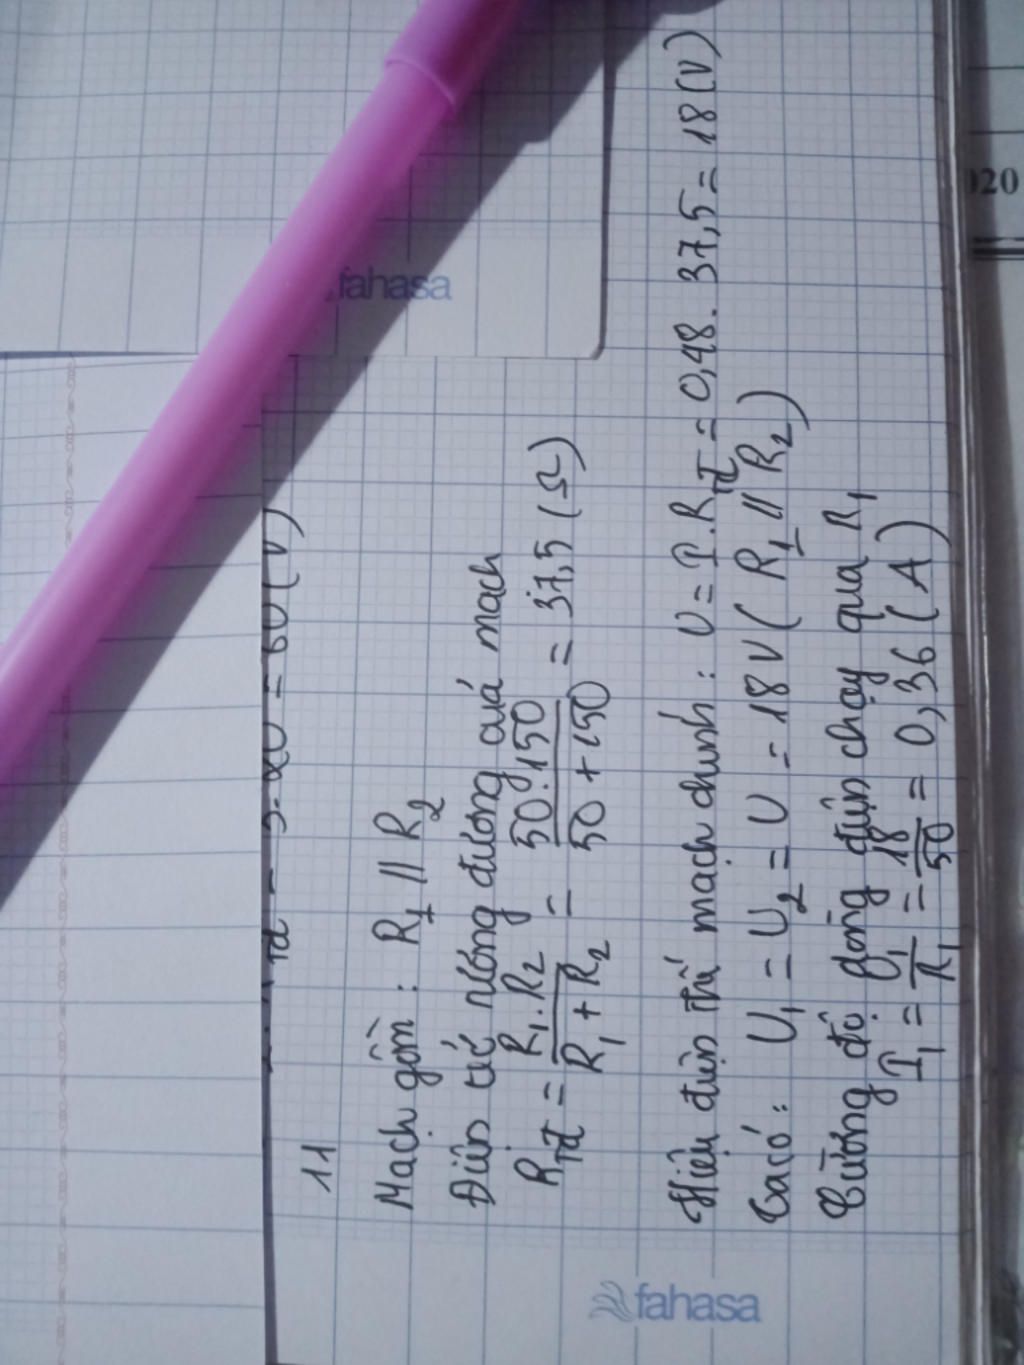 = 60 (V)
11
Mạch gồm : R1 // R2
Điện trở tương đương của mạch
Rtđ = R1.R2 / R1 + R2 = 50.150 / 50 + 150 = 37,5 (Ω)
Hiệu điện thế mạch chính : U = I.Rtđ = 0,48. 37,5 = 18 (V)
Ta có : U1 = U2 = U = 18V ( R1 // R2 )
Cường độ dòng điện chạy qua R1
I1 = U1 / R1 = 18 / 50 = 0,36 ( A )
fahasa
fahasa
020